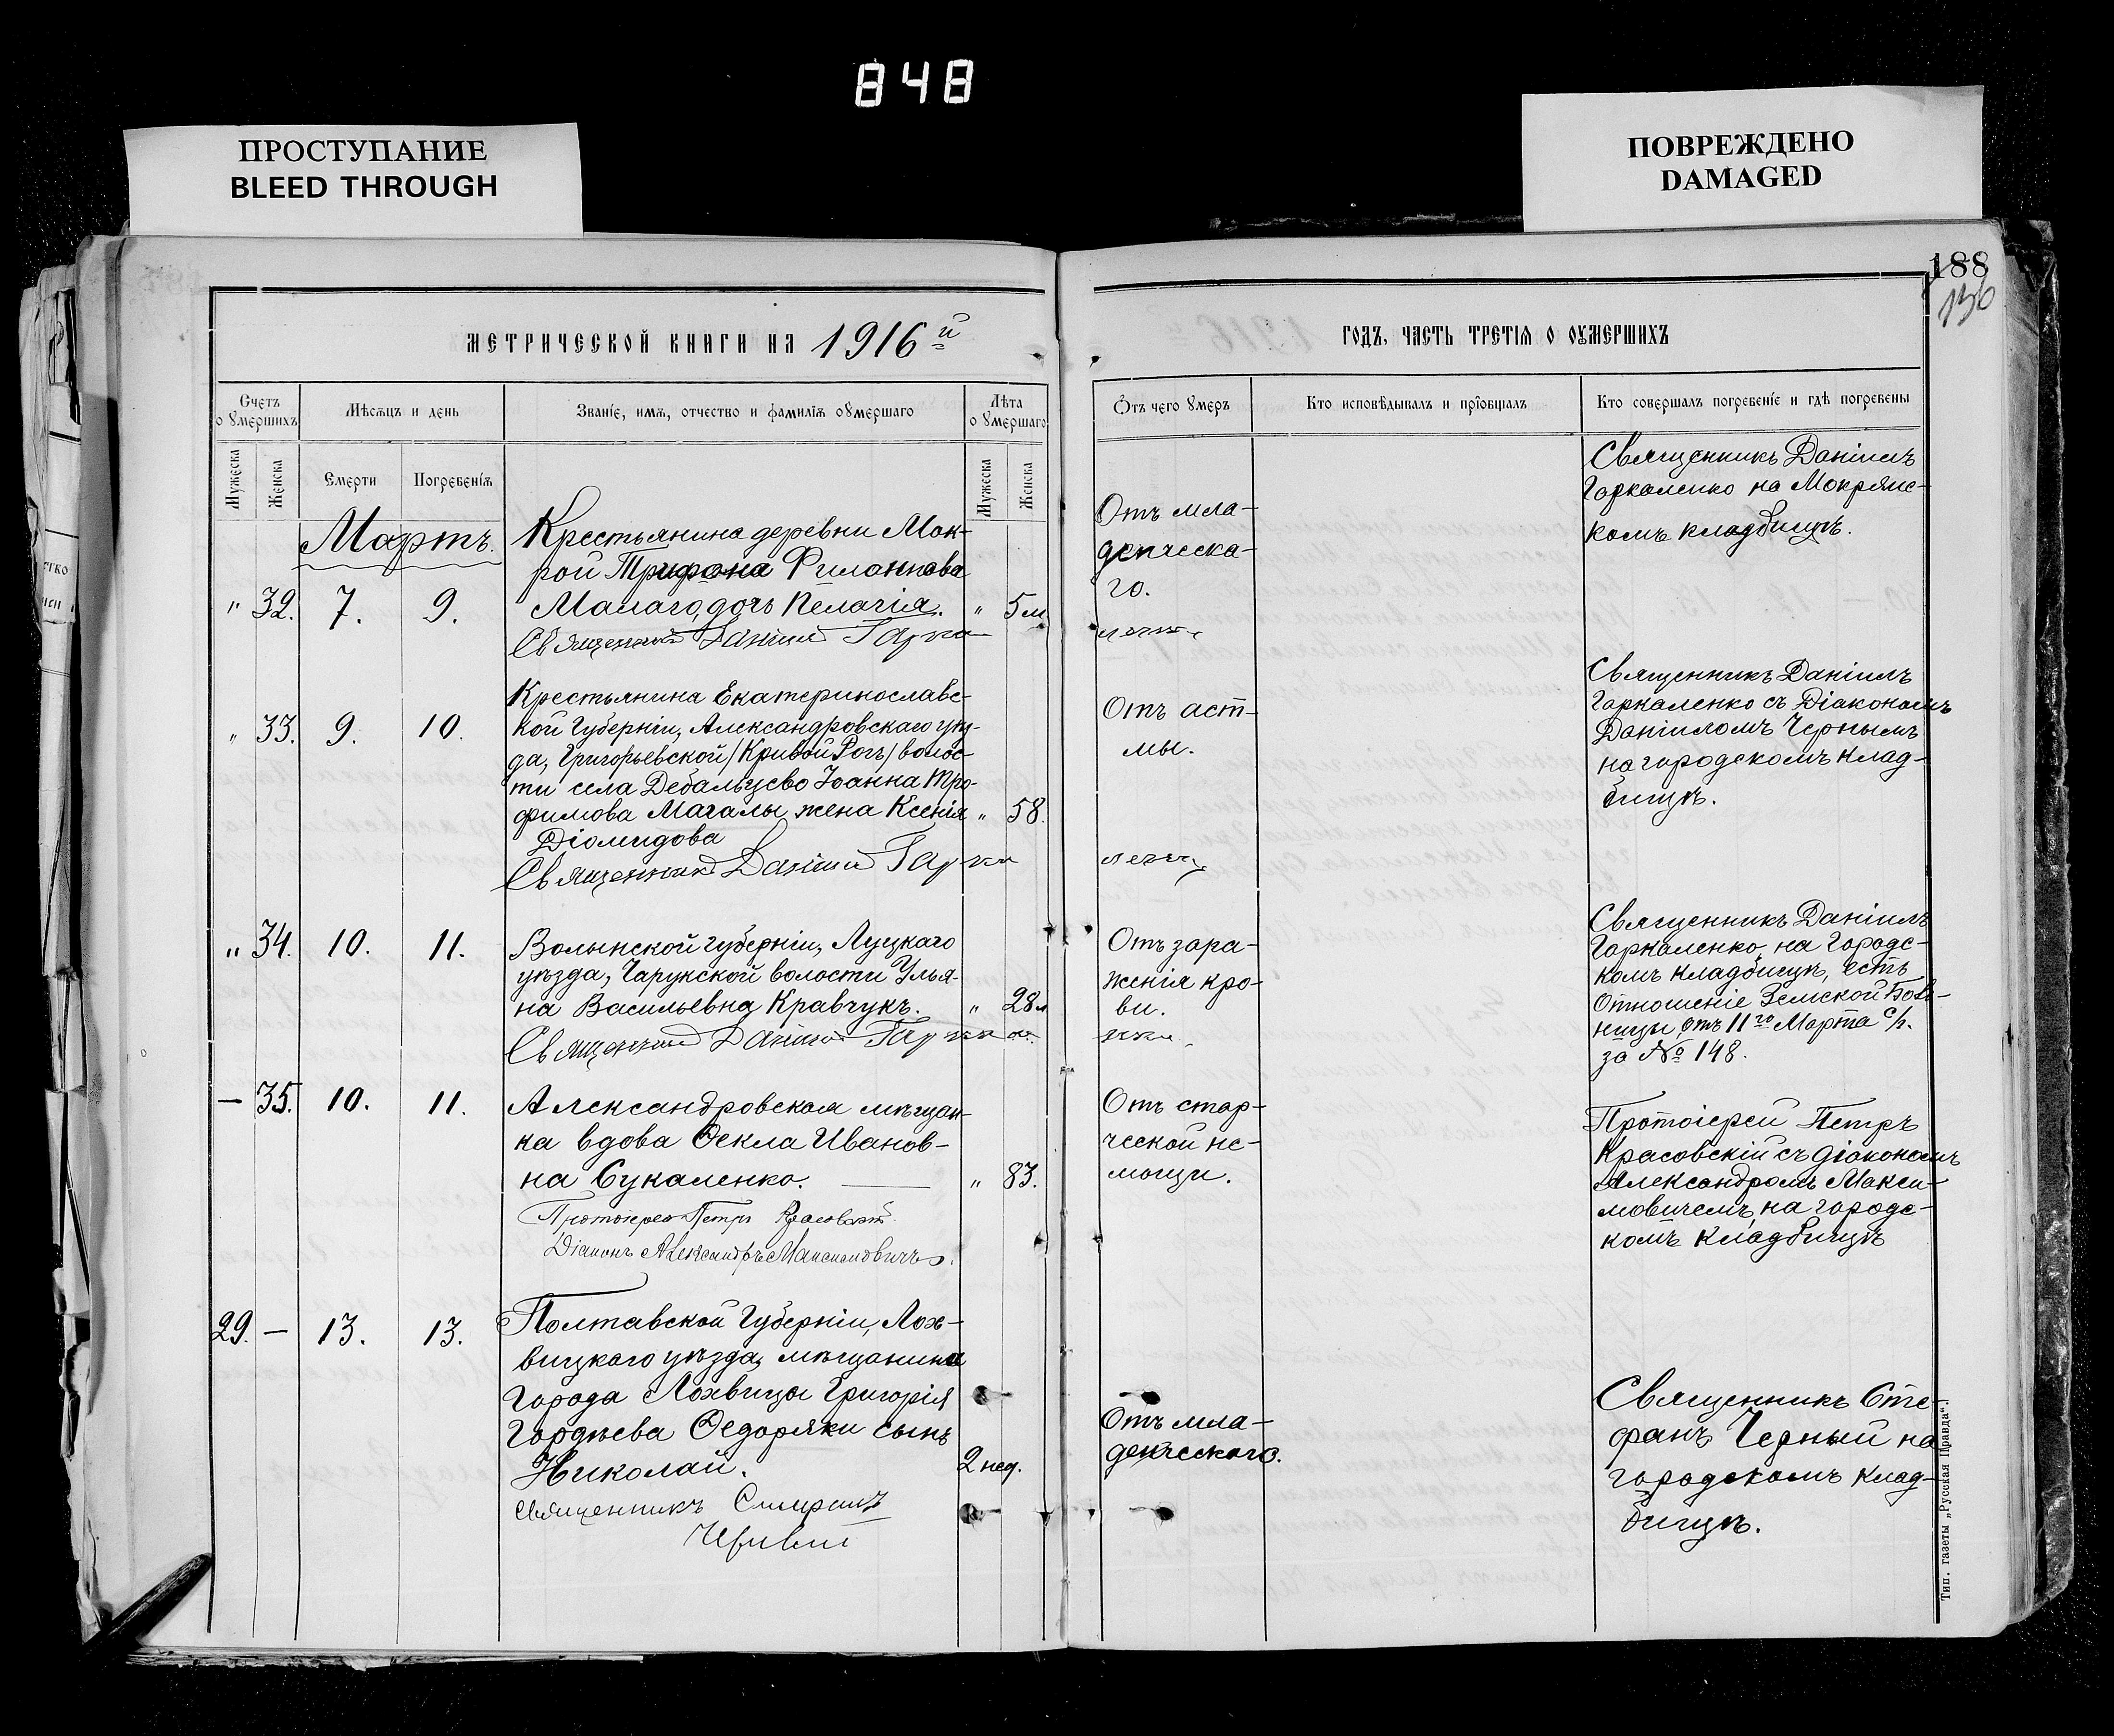 848
ПРОСТУПАНИЕ
BLEED THROUGH
ПОВРЕЖДЕНО
DAMAGED
188
136
МЕТРИЧЕСКОЙ КНИГИ НА 1916й
ГОДЪ, ЧАСТЬ ТРЕТІЯ О ОУМЕРШИХЪ
Счетъ
оумершихъ
Мѣсяцъ и день
Званіе, имя, отчество и фамилія оумершаго
Лѣта
оумершаго
Мужеска
Женска
Смерти
Погребенія
Мужеска
Женска
Отъ чего умеръ
Кто исповѣдывалъ и пріобщалъ
Кто совершалъ погребеніе и гдѣ погребены
Мартъ.
" 32. 7. 9.
Крестьянина деревни Мок-
рой Трифона Филиппова
Малаго, дочь Пелагія. " 5 м
Священникъ Даніилъ Гарка
Отъ мла-
денческа-
го.
ленко
Священникъ Даніилъ
Гаркаленко на Мокрянс-
комъ кладбищѣ.
" 33. 9. 10.
Крестьянина Екатеринославс-
кой Губерніи, Александровскаго уѣз-
да, Григорьевской /Кривой Рогъ/ волос-
ти села Дебальцево Іоанна Тро-
фимова Магалы жена Ксенія " 58.
Діомидова
Священникъ Даніилъ Гарка
Отъ аст-
мы.
ленко
Священникъ Даніилъ
Гаркаленко съ Діакономъ
Даніиломъ Чернымъ
на городскомъ клад-
бищѣ.
" 34. 10. 11.
Волынской губерніи, Луцкаго
уѣзда, Чарукской волости Улья-
на Васильевна Кравчукъ. " 28 л
Священникъ Даніилъ Гарка
Отъ зара-
женія кро-
ви.
Священникъ Даніилъ
Гаркаленко, на городс-
комъ кладбищѣ, есть
Отношеніе Земской Боль-
ницы отъ 11го Марта с/г.
за № 148.
— 35. 10. 11.
Александровская мѣщан-
ка вдова Ѳекла Иванов-
на Сукаленко. " 83.
Протоіерей Петръ Красовскій
Діаконъ Александръ Максимовичъ.
Отъ стар-
ческой не-
мощи.
Протоіерей Петръ
Красовскій съ діакономъ
Александромъ Макси-
мовичемъ, на городс-
комъ кладбищѣ
29. — 13. 13.
Полтавской Губерніи, Лох-
вицкаго уѣзда, мѣщанина
города Лохвицы Григорія
Гордѣева Ѳедоряки сынъ
Николай. 2 нед.
Священникъ Стефанъ
Черный
Отъ мла-
денческаго.
Священникъ Сте-
фанъ Черный на
городскомъ клад-
бищѣ.
Тип. газеты „Русская Правда“.